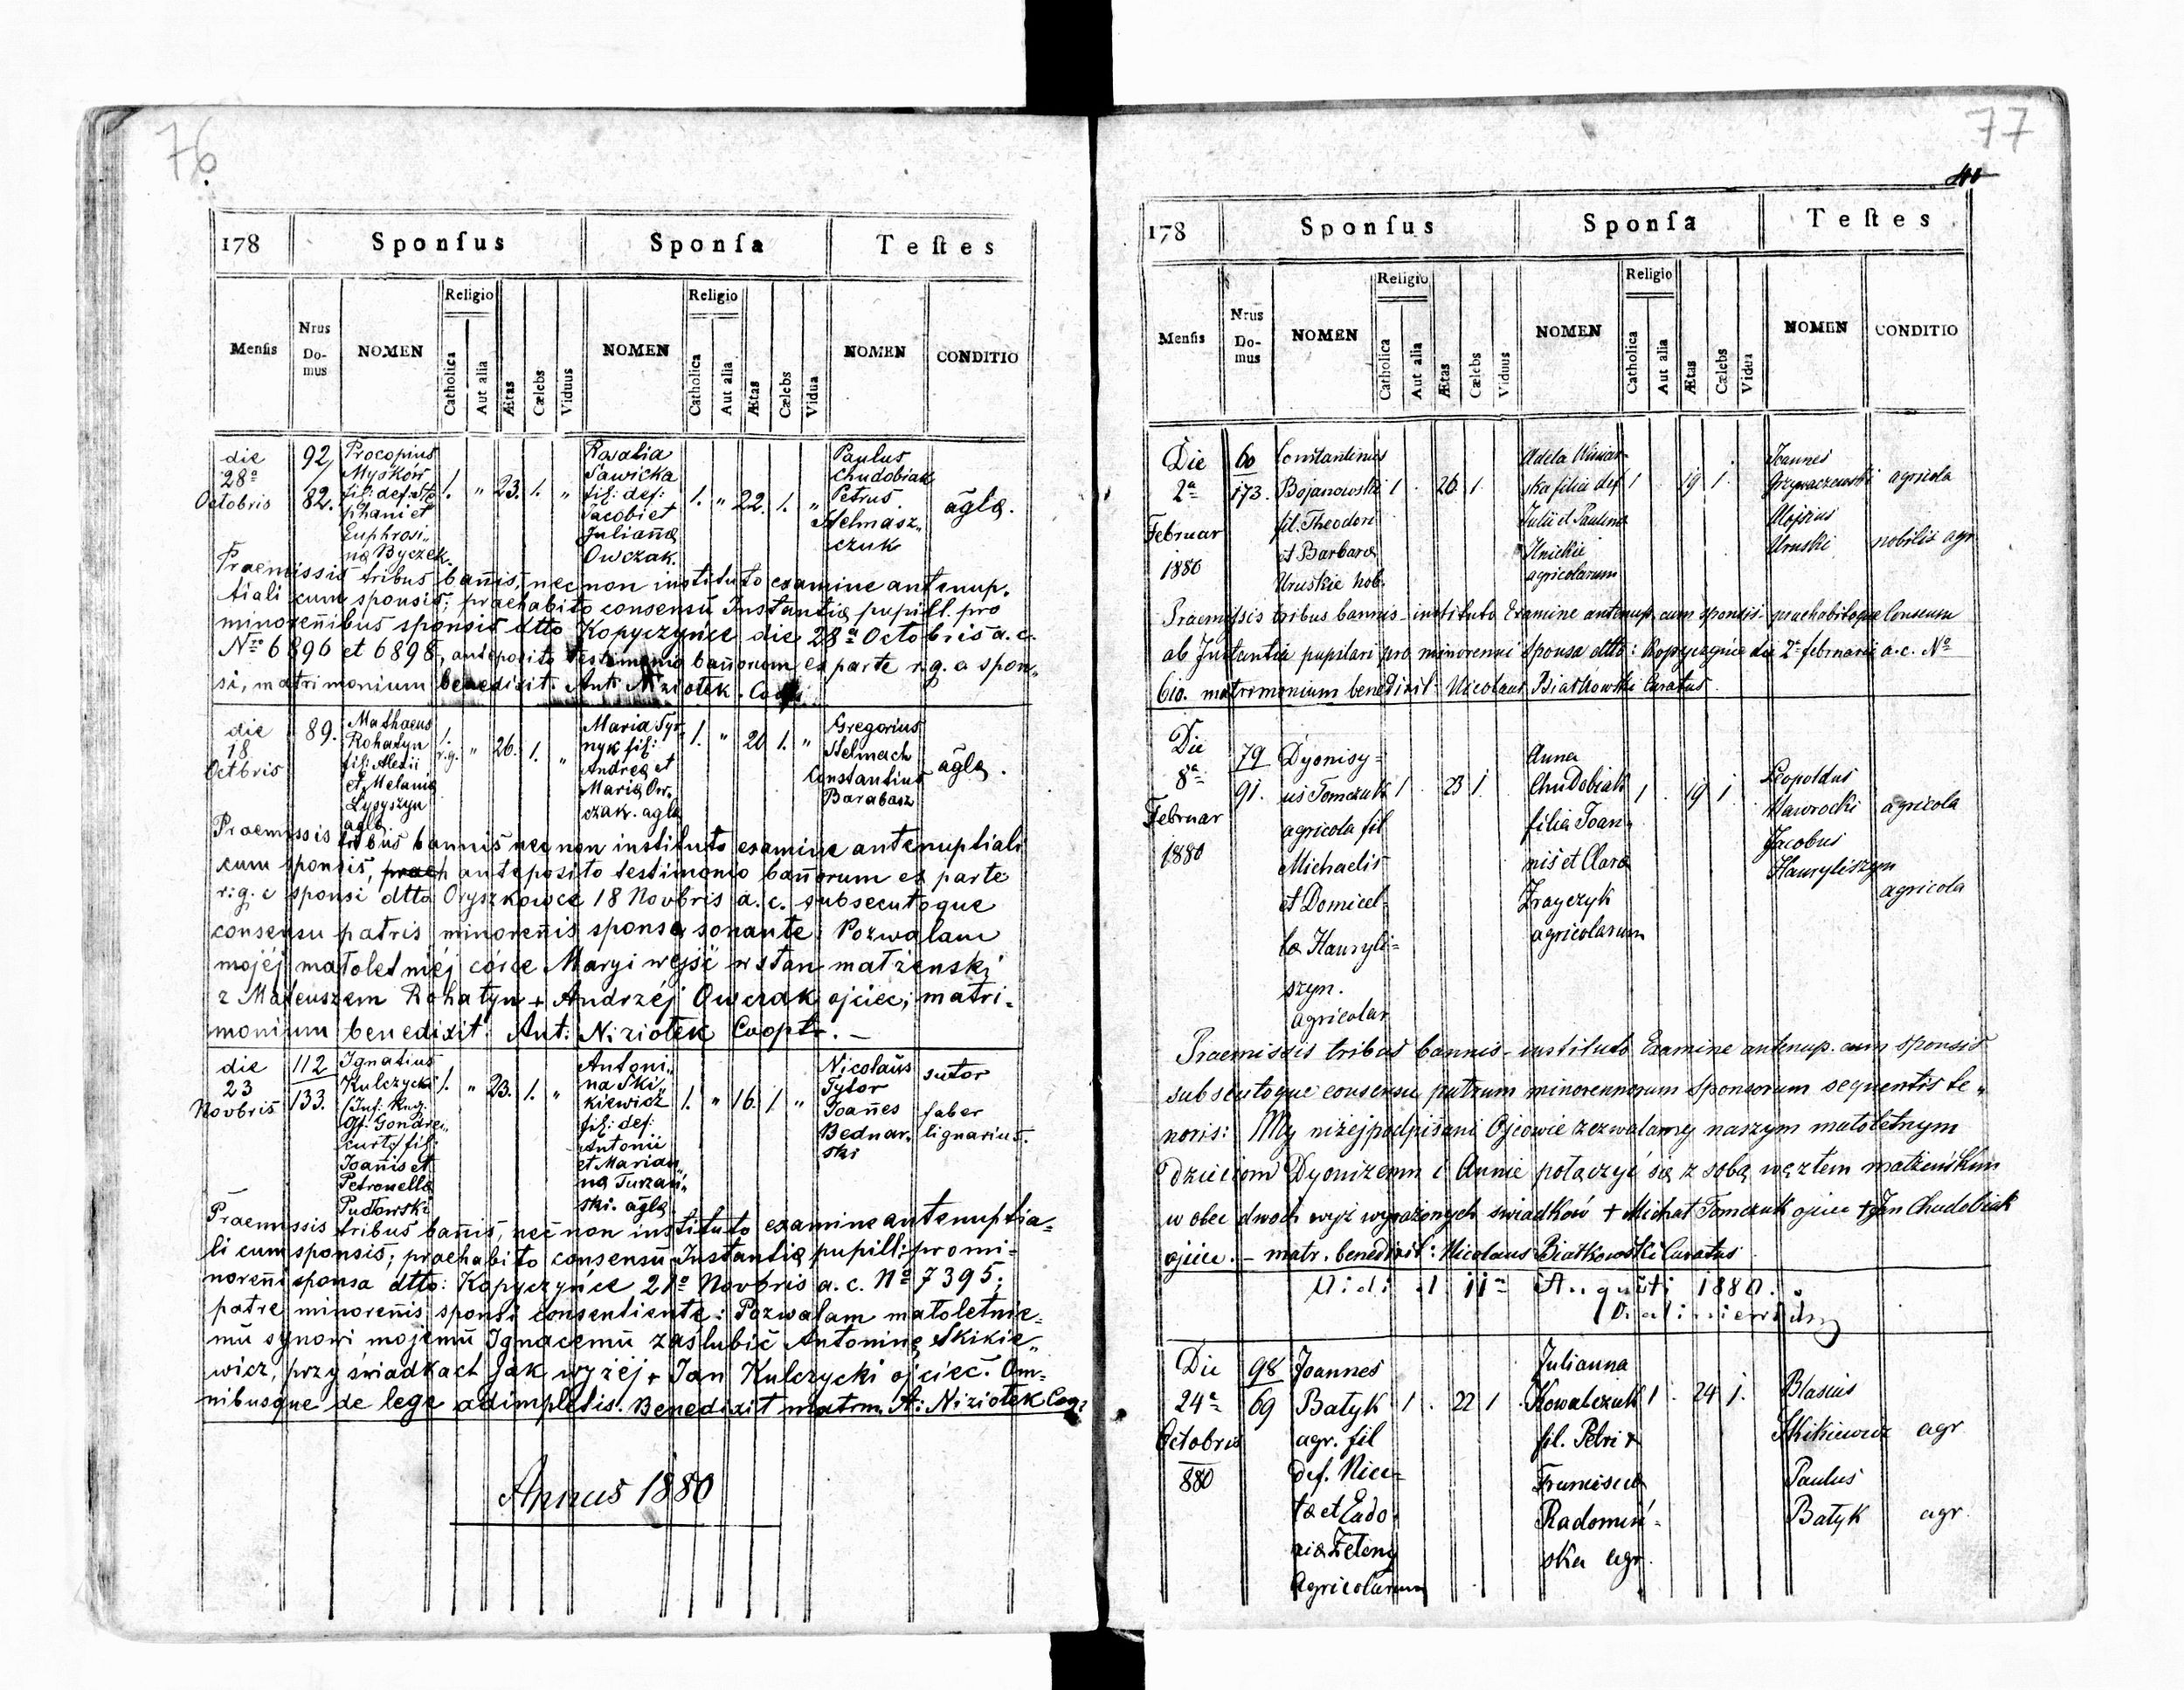 76
178 Sponſus Sponſa Teſtes
Menſis Nrus Do-mus NOMEN Religio Catholica Aut alia Ætas Cælebs Viduus NOMEN Religio Catholica Aut alia Ætas Cælebs Vidua NOMEN CONDITIO
die
28ª
Octobris
92/
82.
Procopius
Mysków
fil: def: Ste
phani et
Euphrosi„
na Byczek.
1. „ 23. 1. „
Rosalia
Sawicka
fil: def:
Jacobi et
Julianna
Owczak.
1. „ 22. 1. „
Paulus
Chudobiak
Petrus
Stelmasz„
czuk
agla.
Praemissis tribus bannis, nec non instituto examine antenup.
tiali cum sponsis; praehabito consensu Instantia pupill. pro
minorennibus sponsis dtto Kopyczyńce die 28ª Octobris a. c.
Nro 6896 et 6898, anteposito testimonio bannorum ex parte r. g. a spon„
si, matrimonium benedixit. Ant: Niziołek.
die
18
Octbris
89.
Mathaeus
Rohatyn
fil: Alexii
et Melania
Łysyszyn
agla.
1. r.g. „ 26. 1. „
Maria Tyr
nyk fil:
Andrea et
Maria Ow.
czak. agla
1. „ 20 1. „
Gregorius
Stelmach
Constantius
Barabasz
agla.
Praemissis tribus bannis nec non instituto examine antenuptiali
cum sponsis, praeh anteposito testimonio bannorum ex parte
r: g. c sponsi dtto Oryszkowce 18 Novbris a. c. subsecutoque
consensu patris minorennis sponsa sonante: Pozwalam
mojéj małoletniéj córce Maryi wejść w stan małżenski
z Mateuszem Rohatyn + Andrzéj Owczak ojciec; matri=
monium benedixit: Ant: Niziołek Coopr. —
die
23
Novbris
112
133.
Ignatius
Kulczycki
/Inf: Reg:
Gf: Gondre„
curt/ fil:
Joannis et
Petronella
Pudowski
1. „ 23. 1. „
Antoni„
na Ski„
kiewicz
fil: def:
Antonii
et Marian„
na Turzań„
ski. agla
1. „ 16. 1 „
Nicolaus
Tylor
Joannes
Bednar„
ski
sutor
faber
lignarius.
Praemissis tribus bannis, nec non instituto examine antenuptia=
li cum sponsis; praehabito consensu Instantia pupill: pro mi=
norenni sponsa dtto: Kopyczyńce 21ª Novbris a. c. Nº 7395;
patre minorennis sponsi consentiente: Pozwalam małoletnie=
mu synowi mojemu Ignacemu zaślubić Antoninę Skikie„
wicz, przy świadkach jak wyżej + Jan Kulczycki ojciec. Om=
nibusque de lege adimpletis. Benedixit matrm. A: Niziołek Coop:
Annus 1880
77
178 Sponſus Sponſa Teſtes
Menſis Nrus Do-mus NOMEN Religio Catholica Aut alia Ætas Cælebs Viduus NOMEN Religio Catholica Aut alia Ætas Cælebs Vidua NOMEN CONDITIO
Die
2ª
Februar
1880
60
173.
Constantinus
Bojanowski
fil. Theodori
et Barbara
Uruskie nob.
1 . 26. 1
Adela Winiar-
ska filia def
Julii et Paulina
Ilnickie
agricolarum
1 . 19 1.
Joannes
Grzywaczewski agricola
Aloisius
Uruski nobilis agr
Praemissis tribus bannis - instituto Examine antenup. cum sponsis - praehabitoque Consensu
ab Instantia pupilari pro minorenni sponsa dtto: Kopyczyńce die 2ª februarii a. c. Nº
610. matrimonium benedixit: Nicolaus Białkowski Curatus.
Die
8ª
Februar
1880
79
91.
Dyonisy=
us Tomczuk
agricola fil
Michaelis
et Domicel=
la Hawryli=
szyn.
agricolar
1 . 23 1.
Anna
Chudobiak
filia Joan„
nis et Clara
Zrayczyk
agricolarum
1 . 19 1
Leopoldus
Nawrocki agricola
Jacobus
Hawryliszyn
agricola
Praemissis tribus bannis - instituto Examine antenup. cum sponsis
subsecutoque consensu patrum minorennorum sponsorum sequentis te„
noris: My niżejpodpisani Ojcowie zezwalamy naszym małoletnym
dzieciom Dyonizemu i Annie połączyć się z sobą węztem małżeńskim
w obec dwoch wyż wyrażonych świadków + Michał Tomczuk ojciec + Jan Chudobiak
ojciec. — matr. benedixit: Nicolaus Białkowski Curatus
Vidi d. 11ª Augusti 1880.
Die
24ª
Octobris
880
98
69
Joannes
Batyk
agr. fil
def. Nice=
ta et Eudo-
xia Zełeny
agricolarum
1 . 22 1
Julianna
Kowalczuk
fil. Petri &
Francisca
Radomiń-
ska agr.
1 . 24 1.
Blasius
Skikiewicz agr
Paulus
Batyk agr.